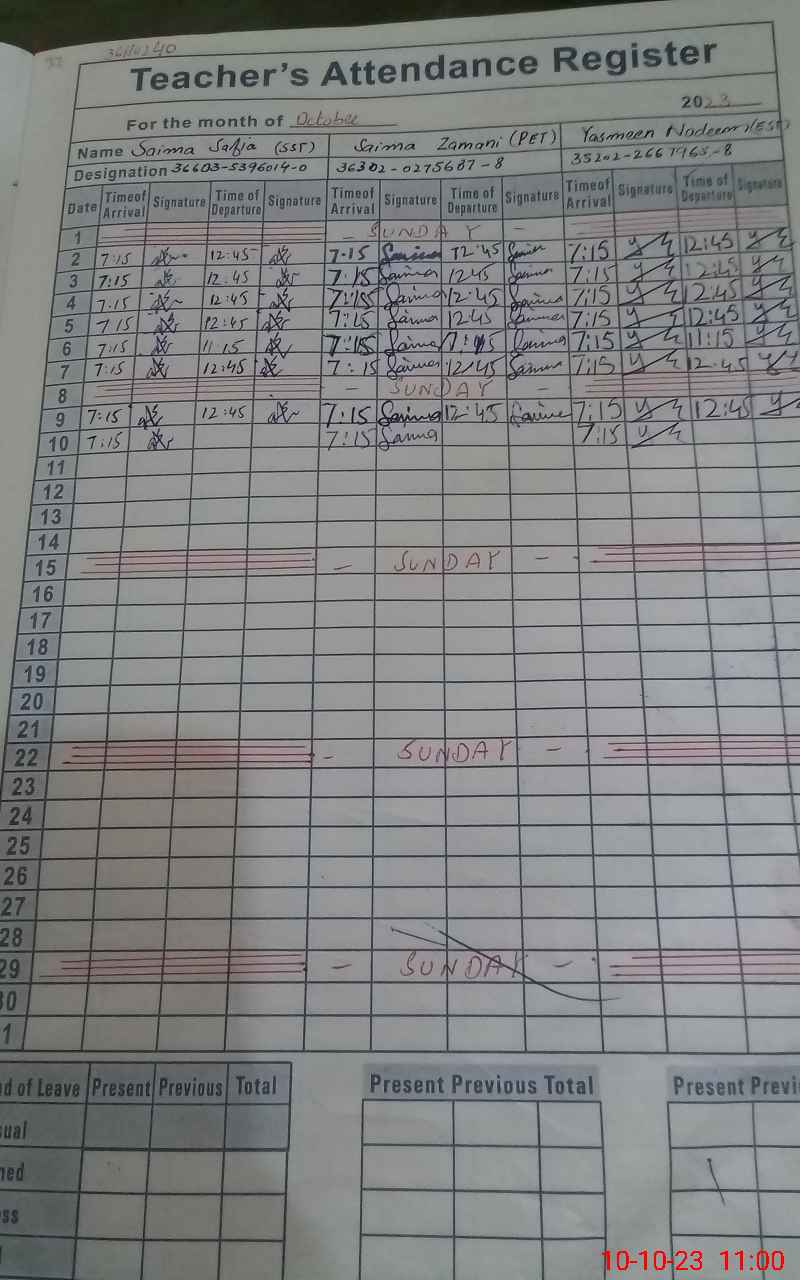 Teacher's Attendance Register
2023
For the month of October
Name Saima Safia (SST) Saima Zamani (PET) Yasmeen Nadeem (EST)
Designation 36603-5396014-0 36302-0275687-8 35202-2667965-8
Date Timeof Arrival Signature Time of Departure Signature Timeof Arrival Signature Time of Departure Signature Timeof Arrival Signature Time of Departure Signature
1 - SUNDAY -
2 7:15 12:45 7:15 Saima 12:45 Saima 7:15 12:45
3 7:15 12:45 7:15 Saima 12:45 Saima 7:15 12:45
4 7:15 12:45 7:15 Saima 12:45 Saima 7:15 12:45
5 7:15 12:45 7:15 Saima 12:45 Saima 7:15 12:45
6 7:15 11:15 7:15 Saima Saima 7:15 11:15
7 7:15 12:45 7:15 Saima 12:45 Saima 7:15 12:45
8 - SUNDAY -
9 7:15 12:45 7:15 Saima 12:45 Saima 7:15 12:45
10 7:15 7:15 Saima 7:15
11
12
13
14
15 - SUNDAY -
16
17
18
19
20
21
22 - SUNDAY -
23
24
25
26
27
28
29 - SUNDAY -
0
1
d of Leave Present Previous Total Present Previous Total Present Previ
ual
ned
ss
10-10-23 11:00